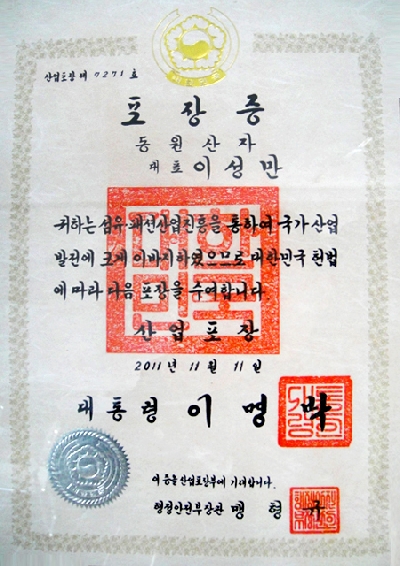 산업포장 제 7271 호
포 장 증
동원산자
대표 이성만
귀하는 섬유·패션산업진흥을 통하여 국가 산업
발전에 크게 이바지하였으므로 대한민국 헌법
에 따라 다음 포장을 수여합니다.
산업포장
2011년 11월 11일
대통령 이 명 박
이 증을 산업포장부에 기재합니다.
행정안전부장관 맹 형 규